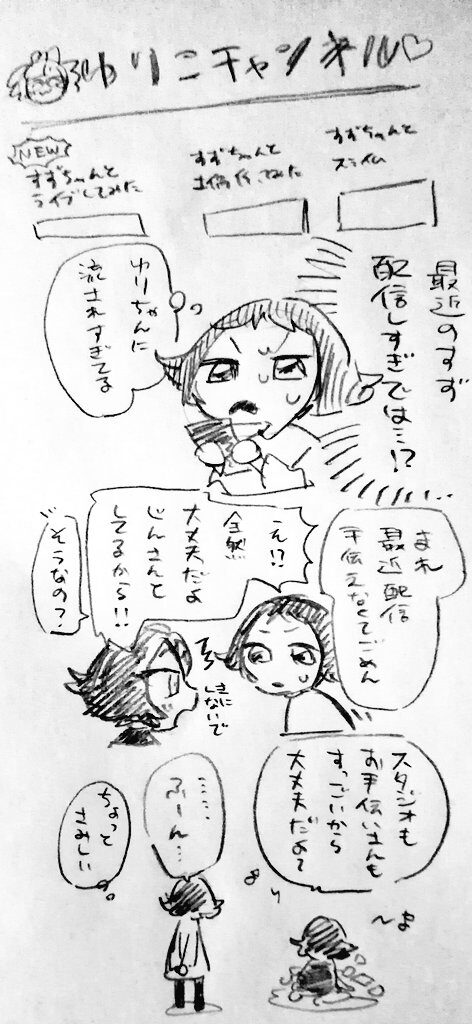 ゆりこチャンネル♡
すずちゃんと
スライム
すずちゃんと
NEW
すずちゃんと
ライブしてみた
最近のすず
配信しすぎでは…!?
ゆりちゃんに
流されすぎてる
まれ
最近配信
手伝えなくてごめん
え!?
全然
大丈夫だよ
じんさんと
してるから!!
そうなの?
きに
しないで
スタジオも
お手伝いさんも
すっごいから
大丈夫だよ〜
……
ふーん…
ちょっと
さみしい